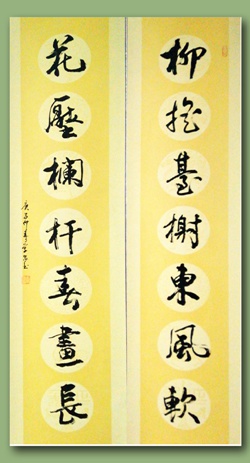 柳搖臺榭東風軟
花壓欄杆春畫長
庚子仲春